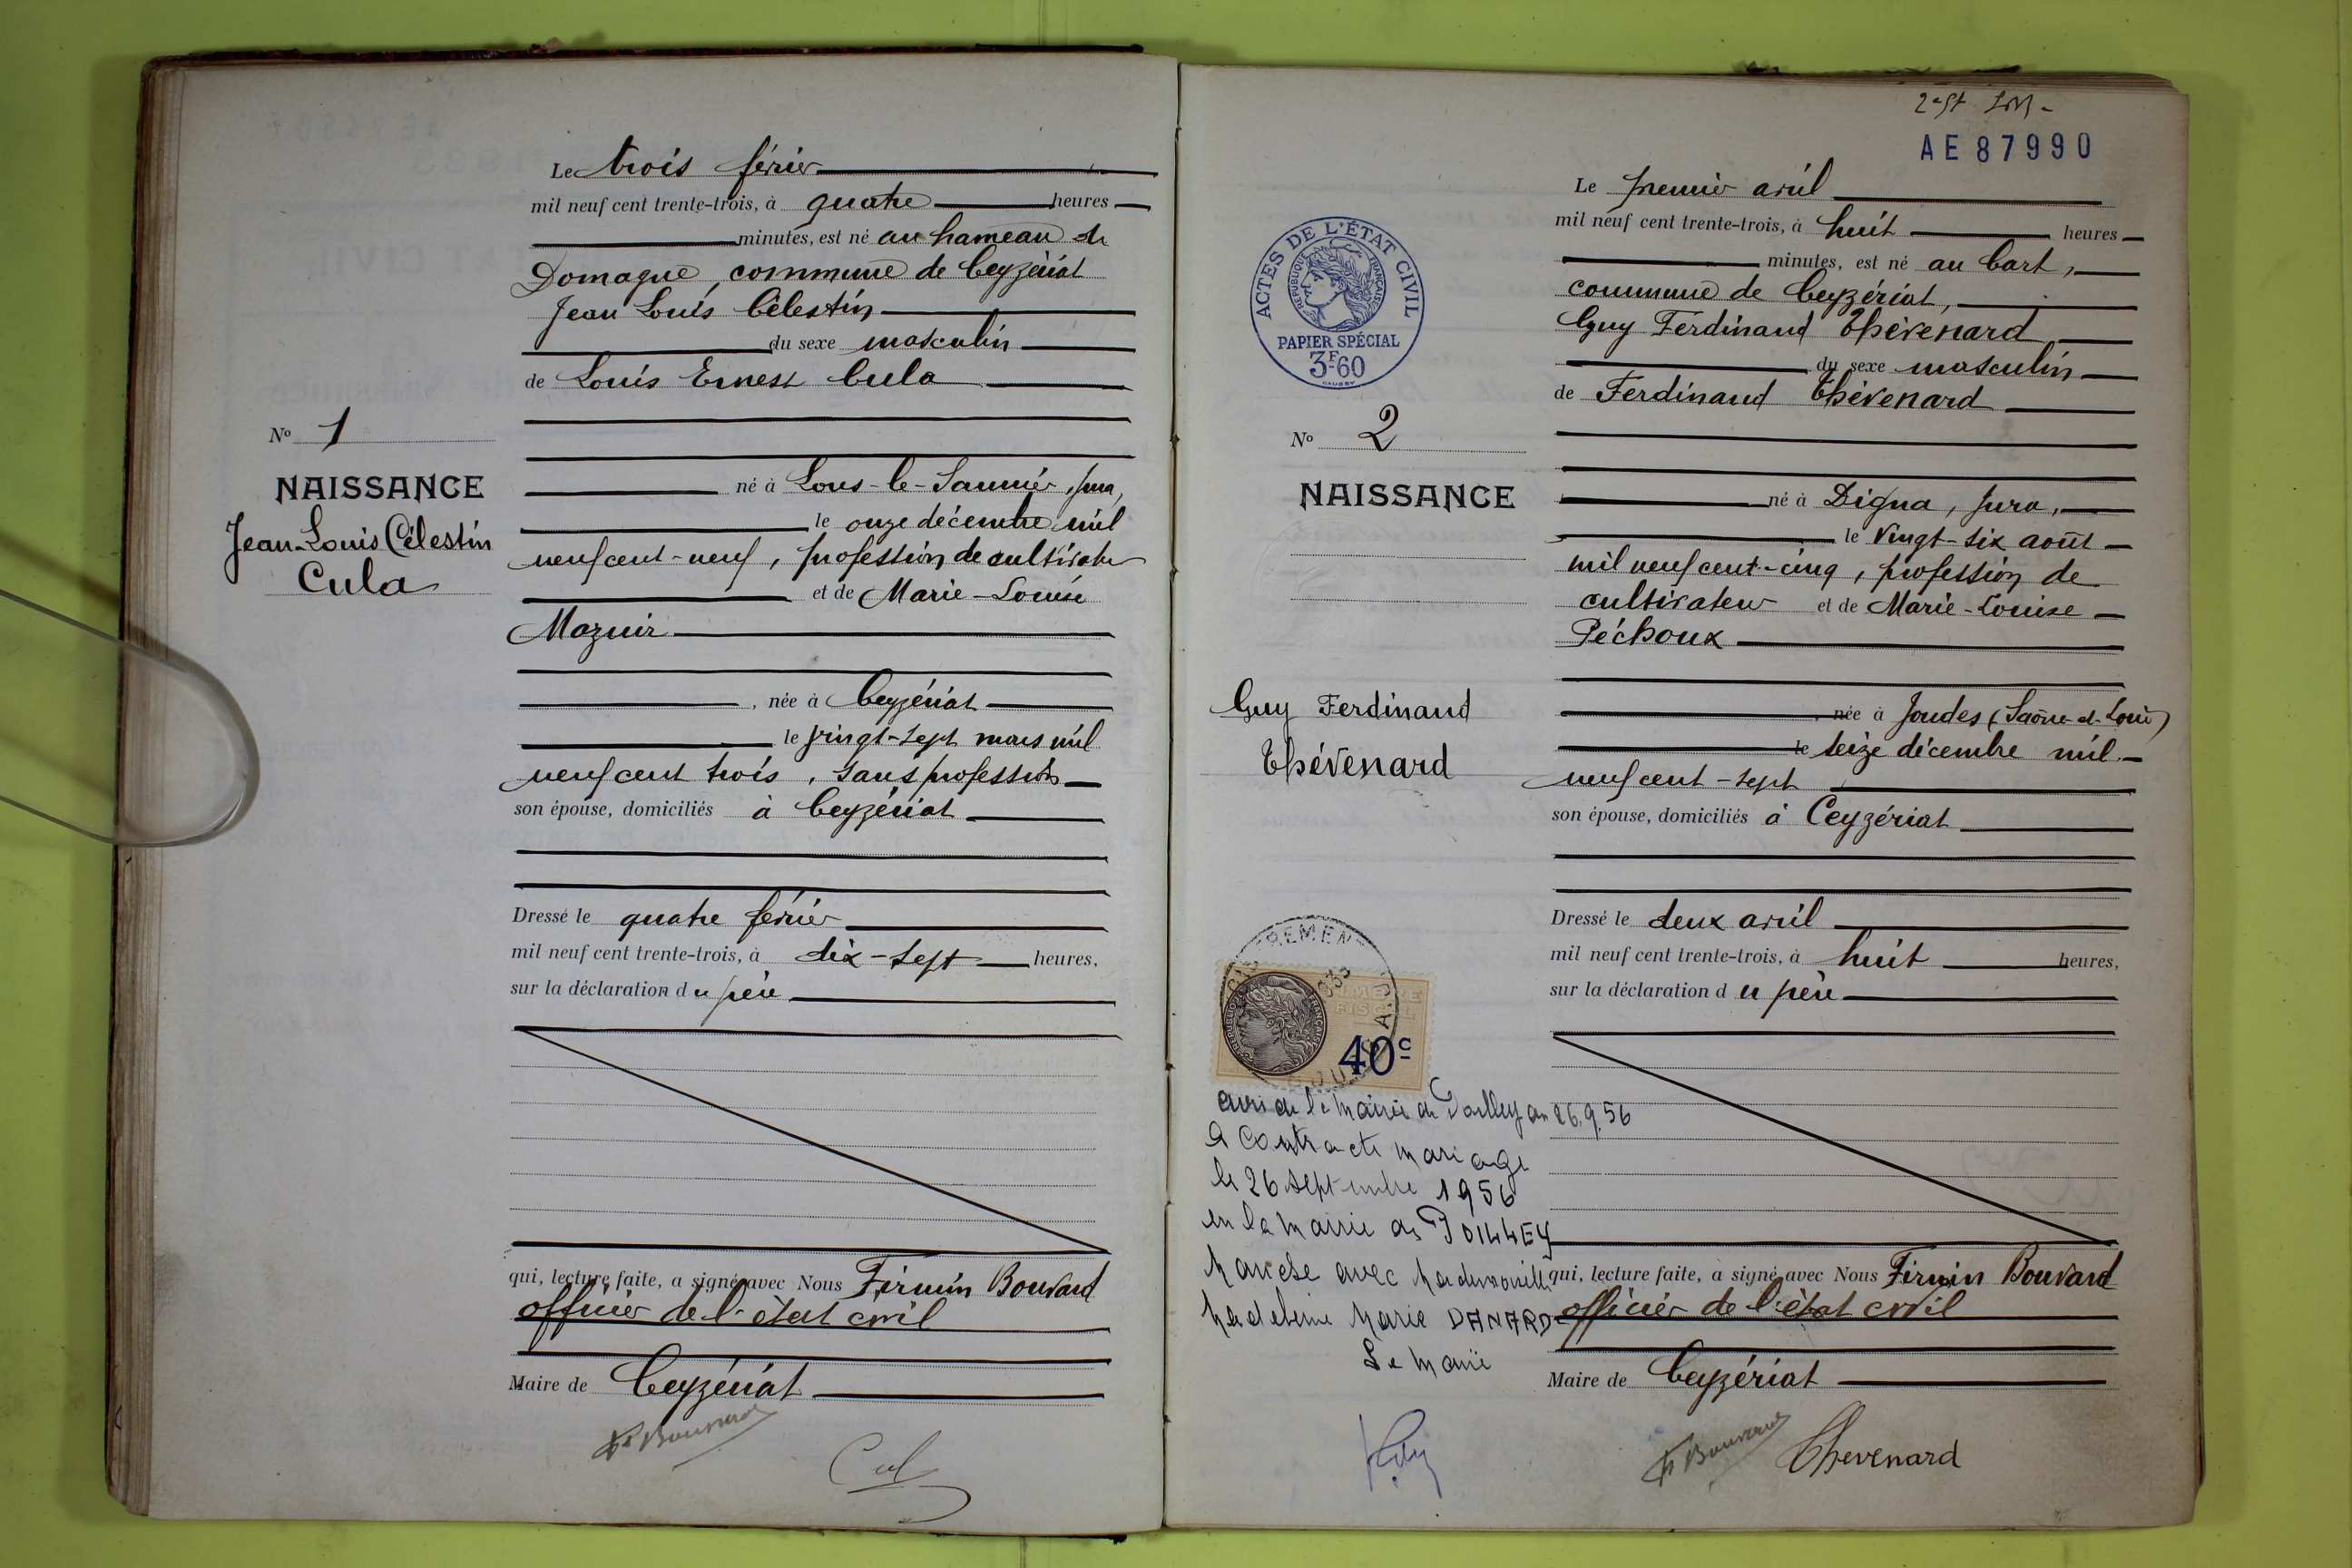 Le trois février
mil neuf cent trente-trois, à quatre heures
minutes, est né au hameau de
Domagne, commune de Ceyzériat
Jean Louis Célestin
du sexe masculin
de Louis Ernest Cula
né à Lons-le-Saunier, Jura,
le onze décembre mil
neuf cent-neuf, profession de cultivateur
et de Marie-Louise
Mazuir
, née à Ceyzériat
le vingt-sept mars mil
neuf cent trois, sans profession
son épouse, domiciliés à Ceyzériat
Dressé le quatre février
mil neuf cent trente-trois, à dix-sept heures,
sur la déclaration du père
qui, lecture faite, a signé avec Nous Firmin Bouvard
officier de l'état civil
Maire de Ceyzériat
F. Bouvard
Cul
Nº 1
NAISSANCE
Jean-Louis Célestin
Cula
AE 87990
ACTES DE L'ÉTAT CIVIL
RÉPUBLIQUE FRANÇAISE
PAPIER SPÉCIAL
3F60
Nº 2
NAISSANCE
Guy Ferdinand
Thévenard
40c
avis de la mairie de 26.9.56
a contracté mariage
le 26 septembre 1956
en la mairie de
avec Mademoiselle
Madeleine Marie DANARD
Le Maire
Le premier avril
mil neuf cent trente-trois, à huit heures
minutes, est né au Cart,
commune de Ceyzériat,
Guy Ferdinand Thévenard
du sexe masculin
de Ferdinand Thévenard
né à Digna, Jura,
le vingt-six août
mil neuf cent-cinq, profession de
cultivateur et de Marie-Louise
Péchoux
, née à Joudes (Saône-et-Loire)
le seize décembre mil
neuf cent-sept
son épouse, domiciliés à Ceyzériat
Dressé le deux avril
mil neuf cent trente-trois, à huit heures,
sur la déclaration du père
qui, lecture faite, a signé avec Nous Firmin Bouvard
officier de l'état civil
Maire de Ceyzériat
F. Bouvard
Thevenard